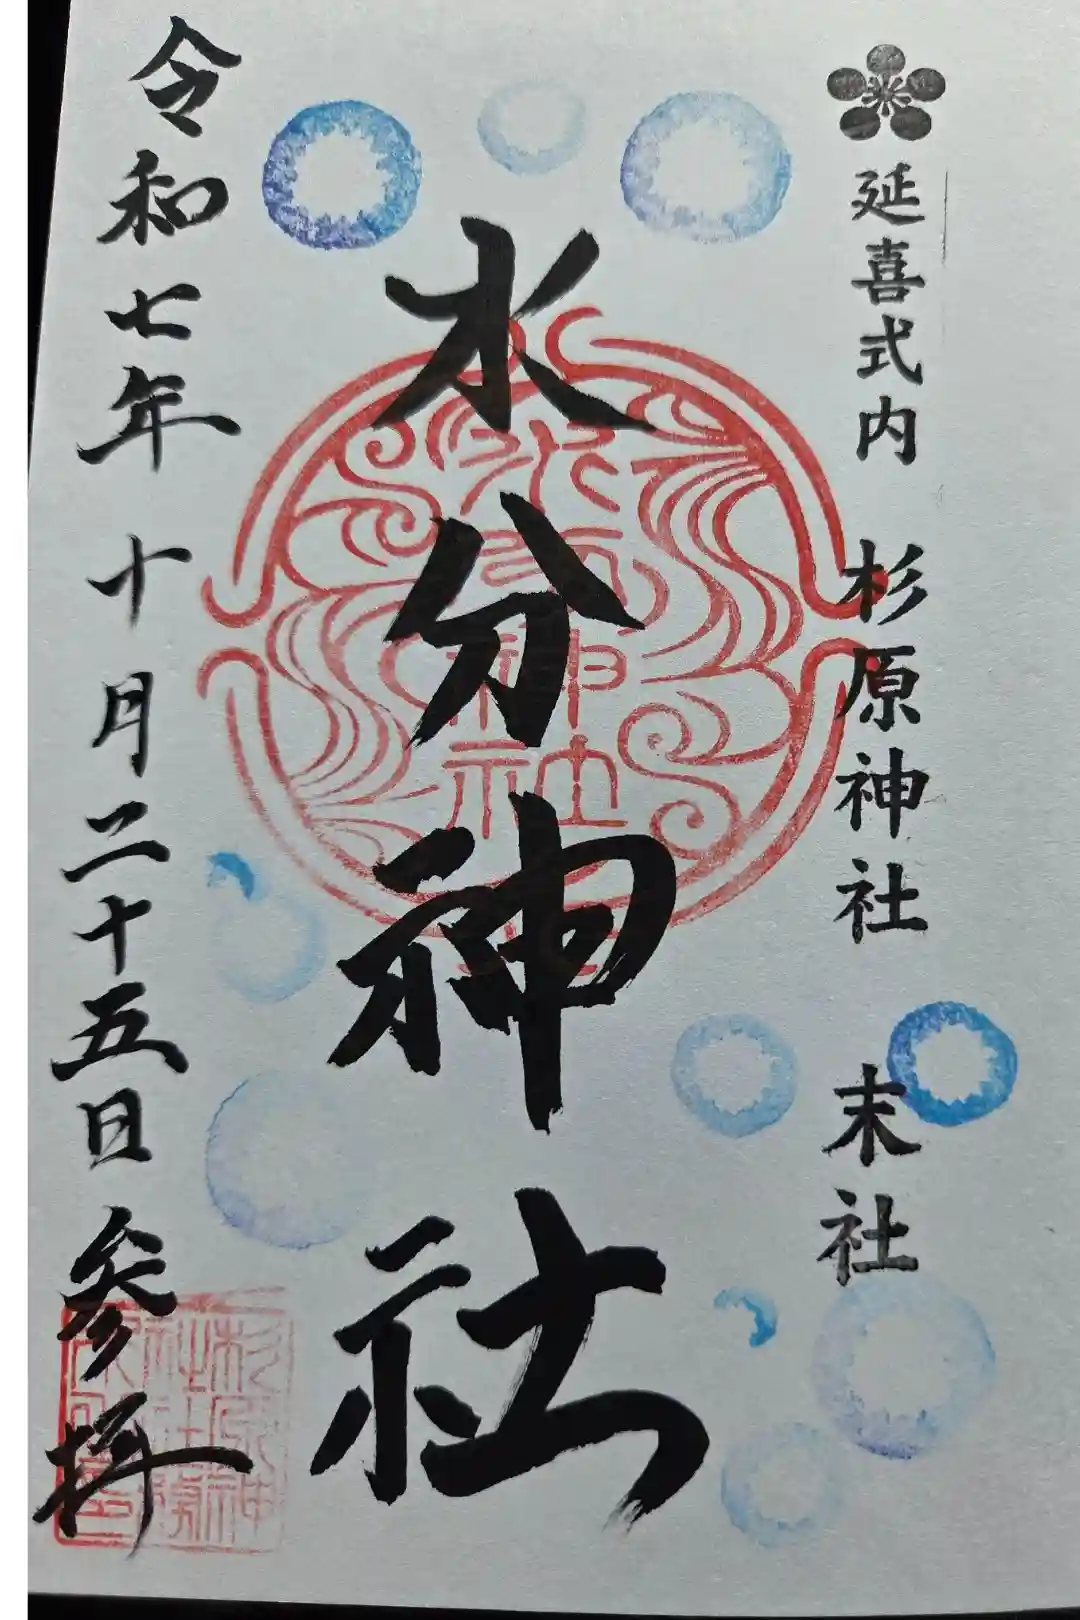 延喜式内 杉原神社 末社
水分神社
水分神社
令和七年 十月二十五日 参拝
杉原神
社社務